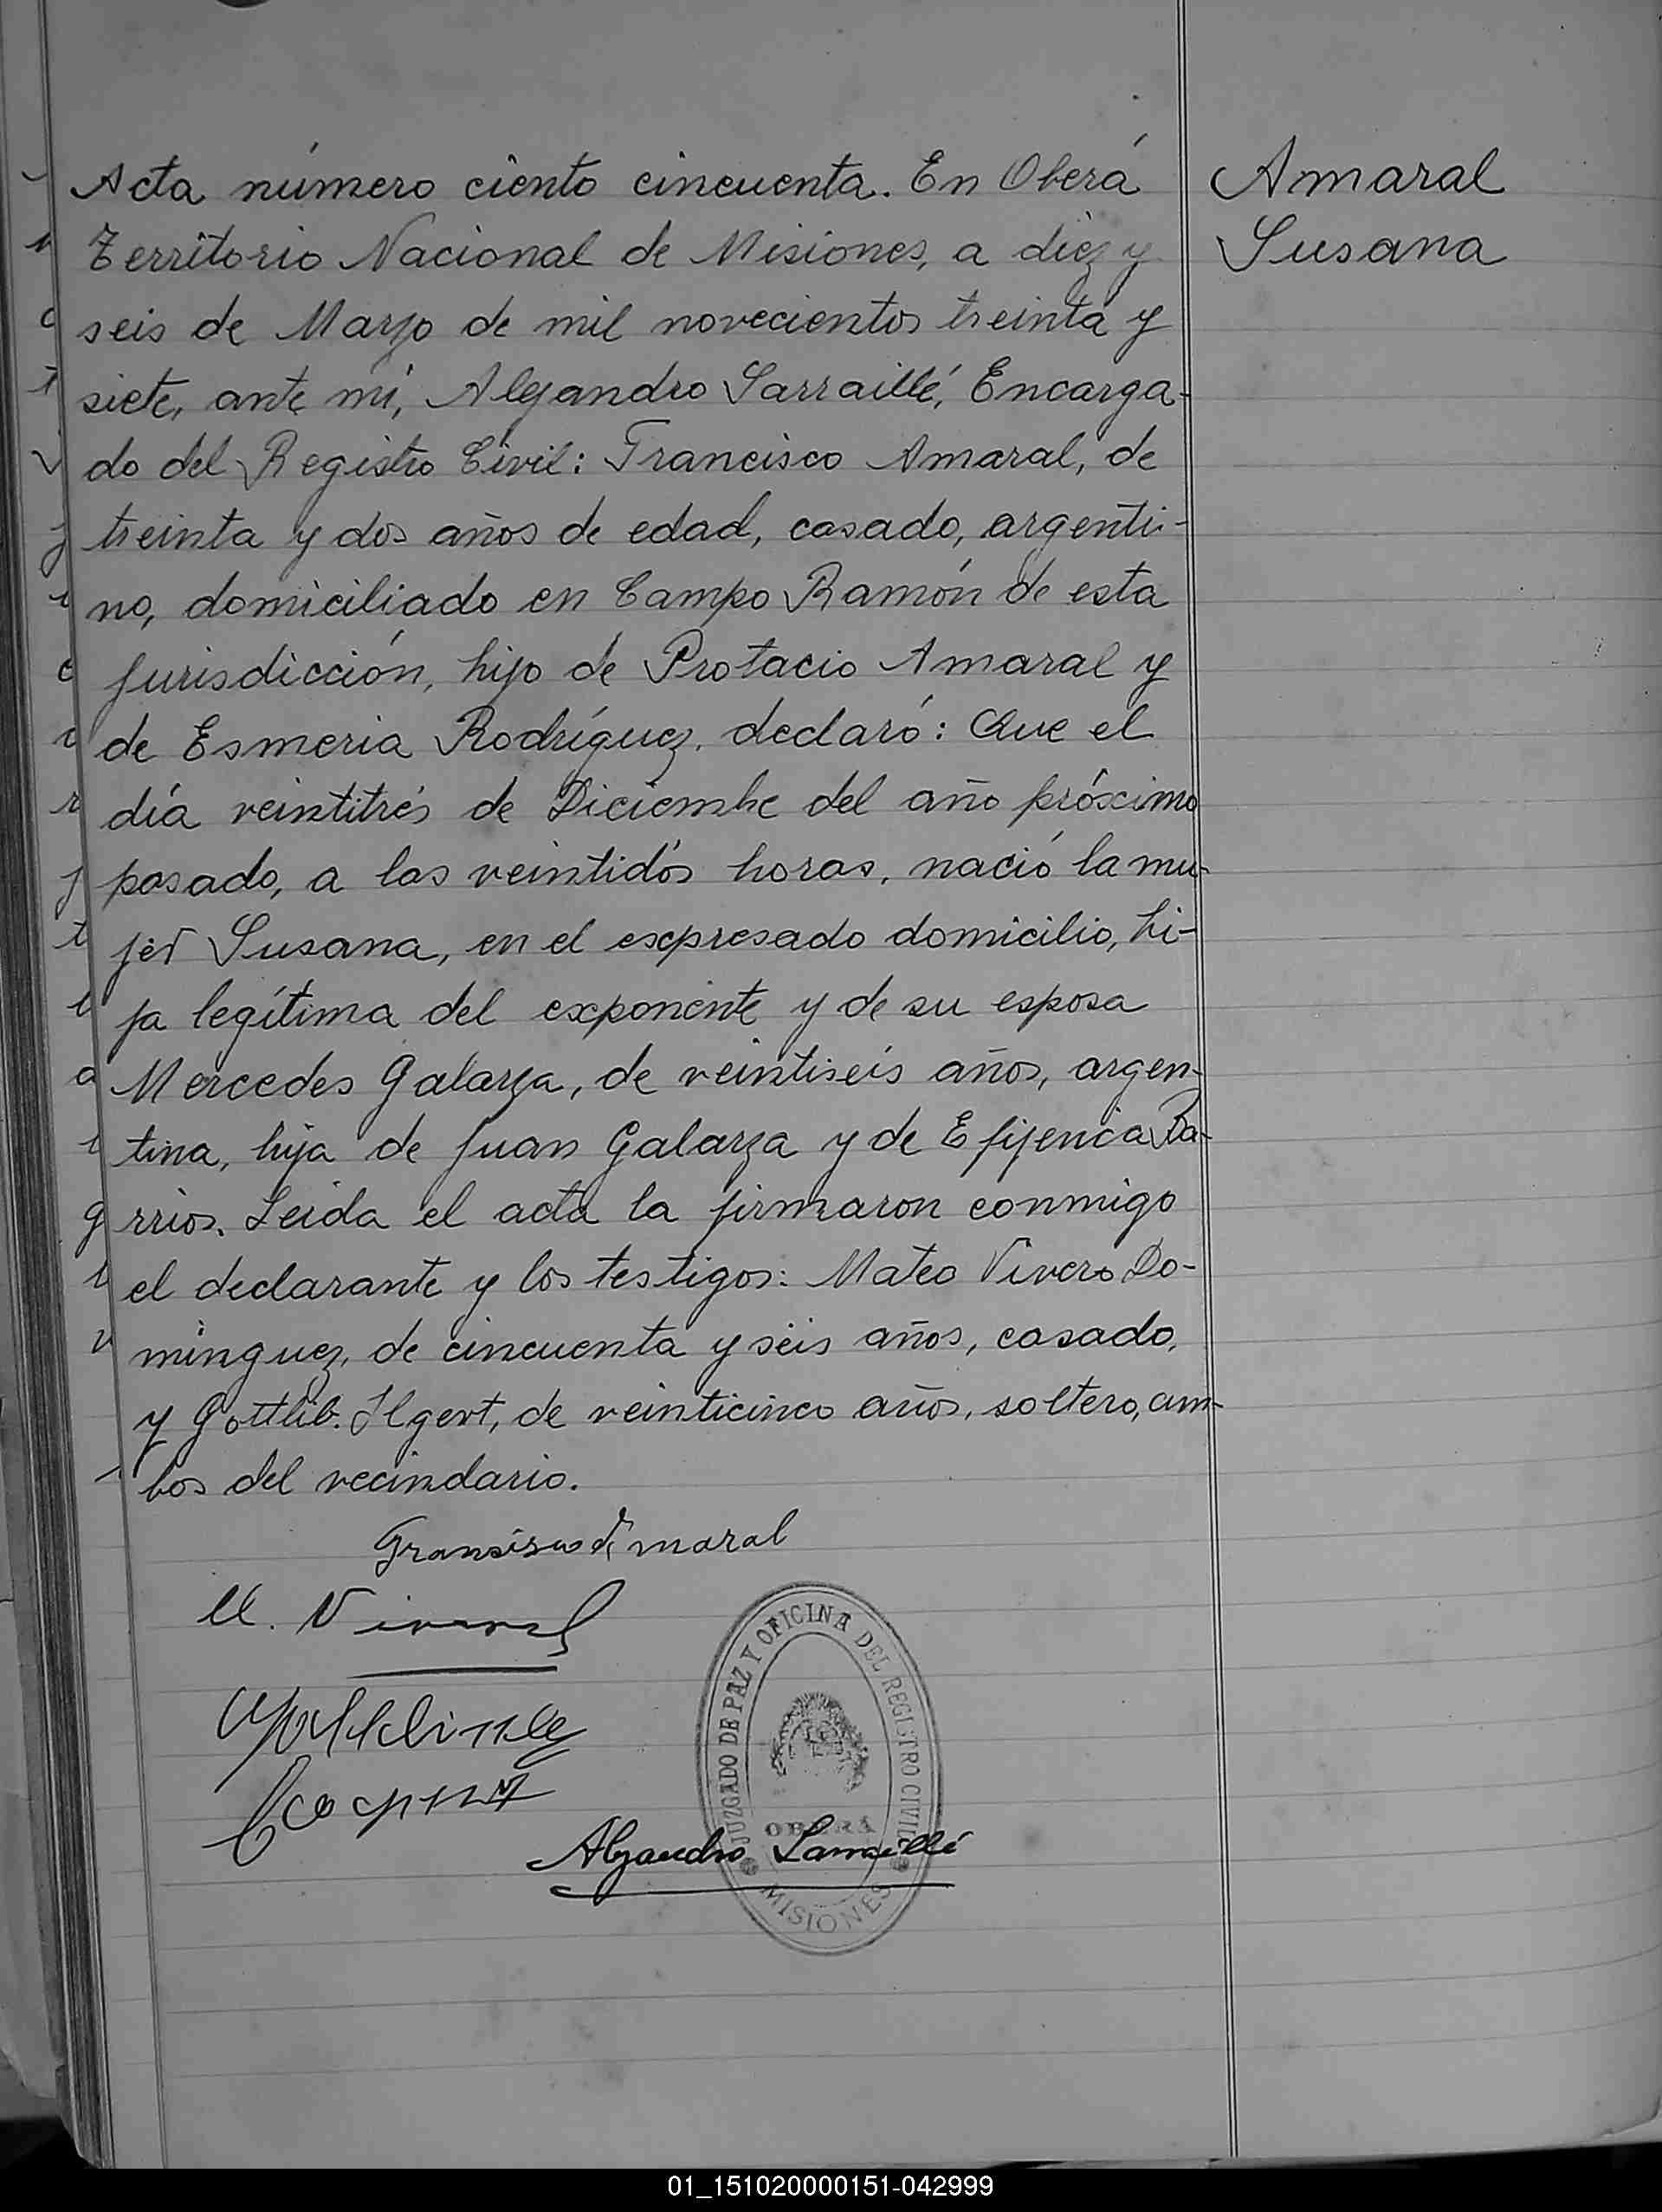 Acta número ciento cincuenta. En Oberá
Territorio Nacional de Misiones, a diez y
seis de Marzo de mil novecientos treinta y
siete, ante mí, Alejandro Sarraillé, Encarga-
do del Registro Civil: Francisco Amaral, de
treinta y dos años de edad, casado, argenti-
no, domiciliado en Campo Ramón de esta
jurisdicción, hijo de Protacio Amaral y
de Esmeria Rodríguez, declaró: Que el
día veintitrés de Diciembre del año próximo
pasado, a las veintidós horas, nació la mu-
jer Susana, en el expresado domicilio, hi-
ja legítima del exponente y de su esposa
Mercedes Galarza, de veintiseis años, argen-
tina, hija de Juan Galarza y de Efijenia Ba-
rrios. Leida el acta la firmaron conmigo
el declarante y los testigos: Mateo Vivero Do-
minguez, de cincuenta y seis años, casado,
y Gottlib Ilgert, de veinticinco años, soltero, am-
bos del vecindario.
Amaral
Susana
Fransisco Amaral
M. Vivero
Alejandro Sarraillé
JUZGADO DE PAZ Y OFICINA DEL REGISTRO CIVIL
OBERÁ
MISIONES
01_151020000151-042999